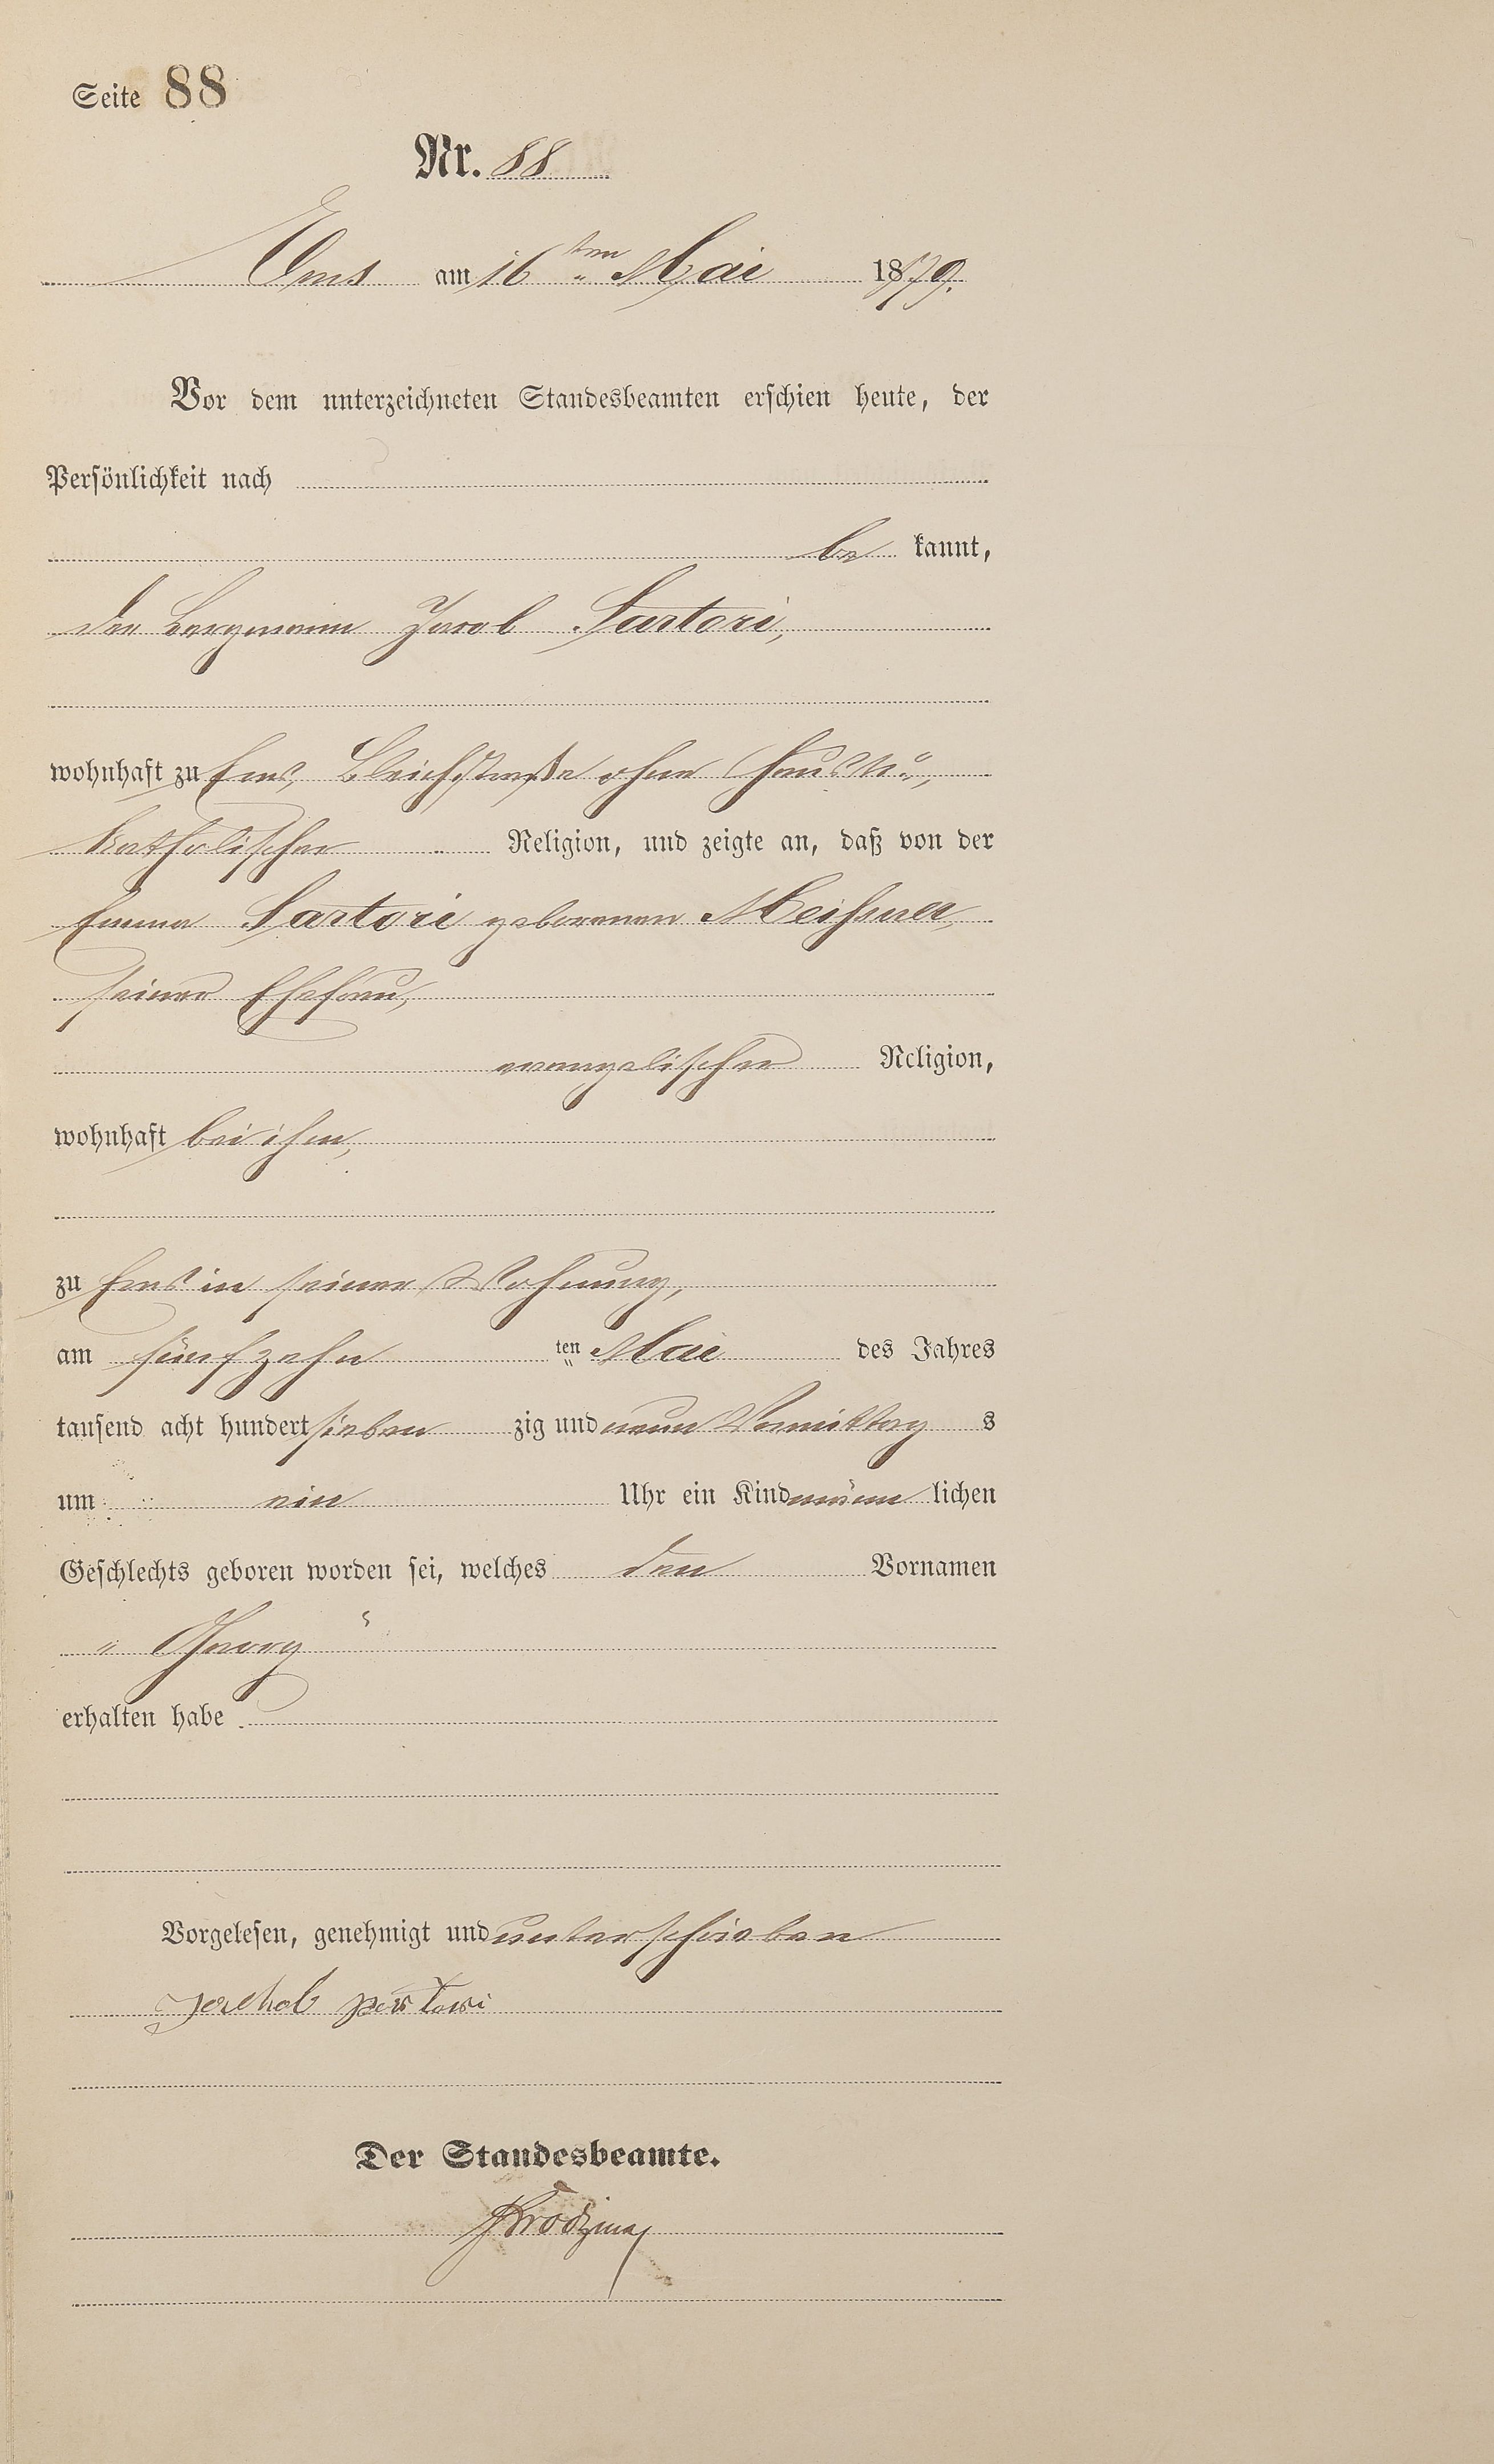 Seite 88
Nr. 88
Ems am 16 ten Mai 1879.
Vor dem unterzeichneten Standesbeamten erschien heute, der
Persönlichkeit nach
be kannt,
der Bergmann Jacob Sartori,
wohnhaft zu Ems, Bleichstraße ohne Haus No,
katholischer Religion, und zeigte an, daß von der
Emma Sartori geborenen Meißner
seiner Ehefrau,
evangelischer Religion,
wohnhaft bei ihm,
zu Ems in seiner Wohnung,
am fünfzehn ten Mai des Jahres
tausend acht hundert sieben zig und neun Vormittag s
um ein Uhr ein Kind männ lichen
Geschlechts geboren worden sei, welches den Vornamen
„ Georg “
erhalten habe
Vorgelesen, genehmigt und unterschrieben
Sartori
Der Standesbeamte.